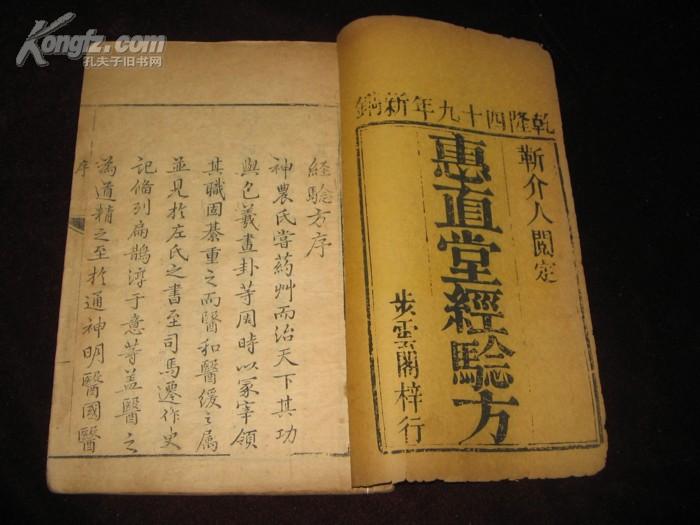 Kongfz.com
孔夫子旧书网
乾隆四十九年新鐫
靳介人閱定
惠直堂經驗方
步雲閣梓行
經驗方序
神農氏嘗葯艸而治天下其功
與包羲畫卦等周時以冢宰領
其職固綦重之而醫和醫緩之屬
並見於左氏之書至司馬遷作史
記俻列扁鵲淳于意等盖醫之
為道精之至於通神明醫國醫
序